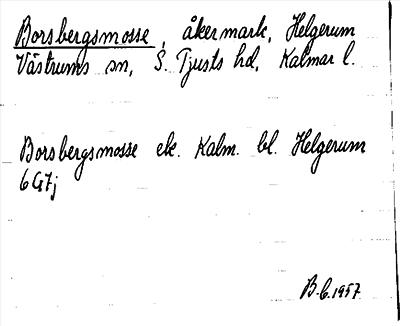 Borsbergsmosse, åkermark, Helgerum
Västrums sn, S. Tjusts hd, Kalmar l.
Borsbergsmosse ek. Kalm. bl. Helgerum
6G7j
B.C. 1957